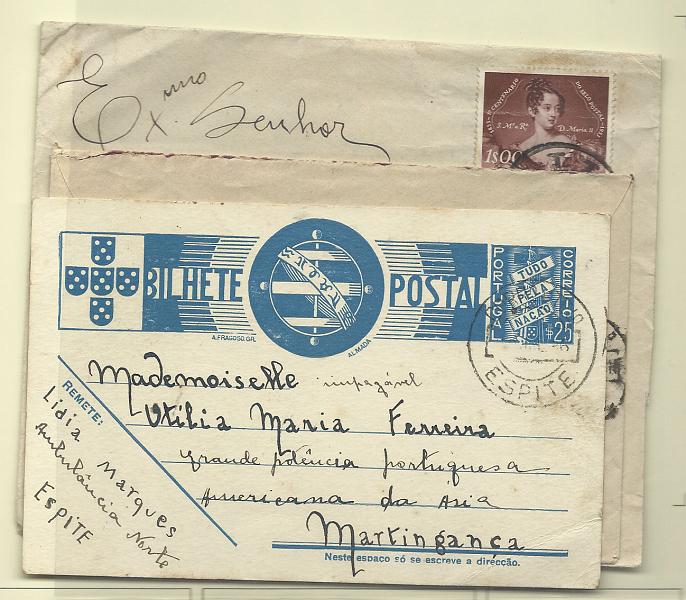 Exmo. Senhor
1853 1º CENTENÁRIO DO SELO POSTAL 1953
S. Mª a Rª D. Maria II
1$00
BILHETE POSTAL
PORTUGAL
CORREIO
TUDO PELA NAÇÃO
$25
A.FRAGOSO.GR.
ALMADA
ESPITE
Mademoiselle impagável
Utília Maria Ferreira
grande potência portuguesa
Americana da Asia
Martingança
Neste espaço só se escreve a direcção.
REMETE:
Lidia Marques
Ambulância Norte
Espite